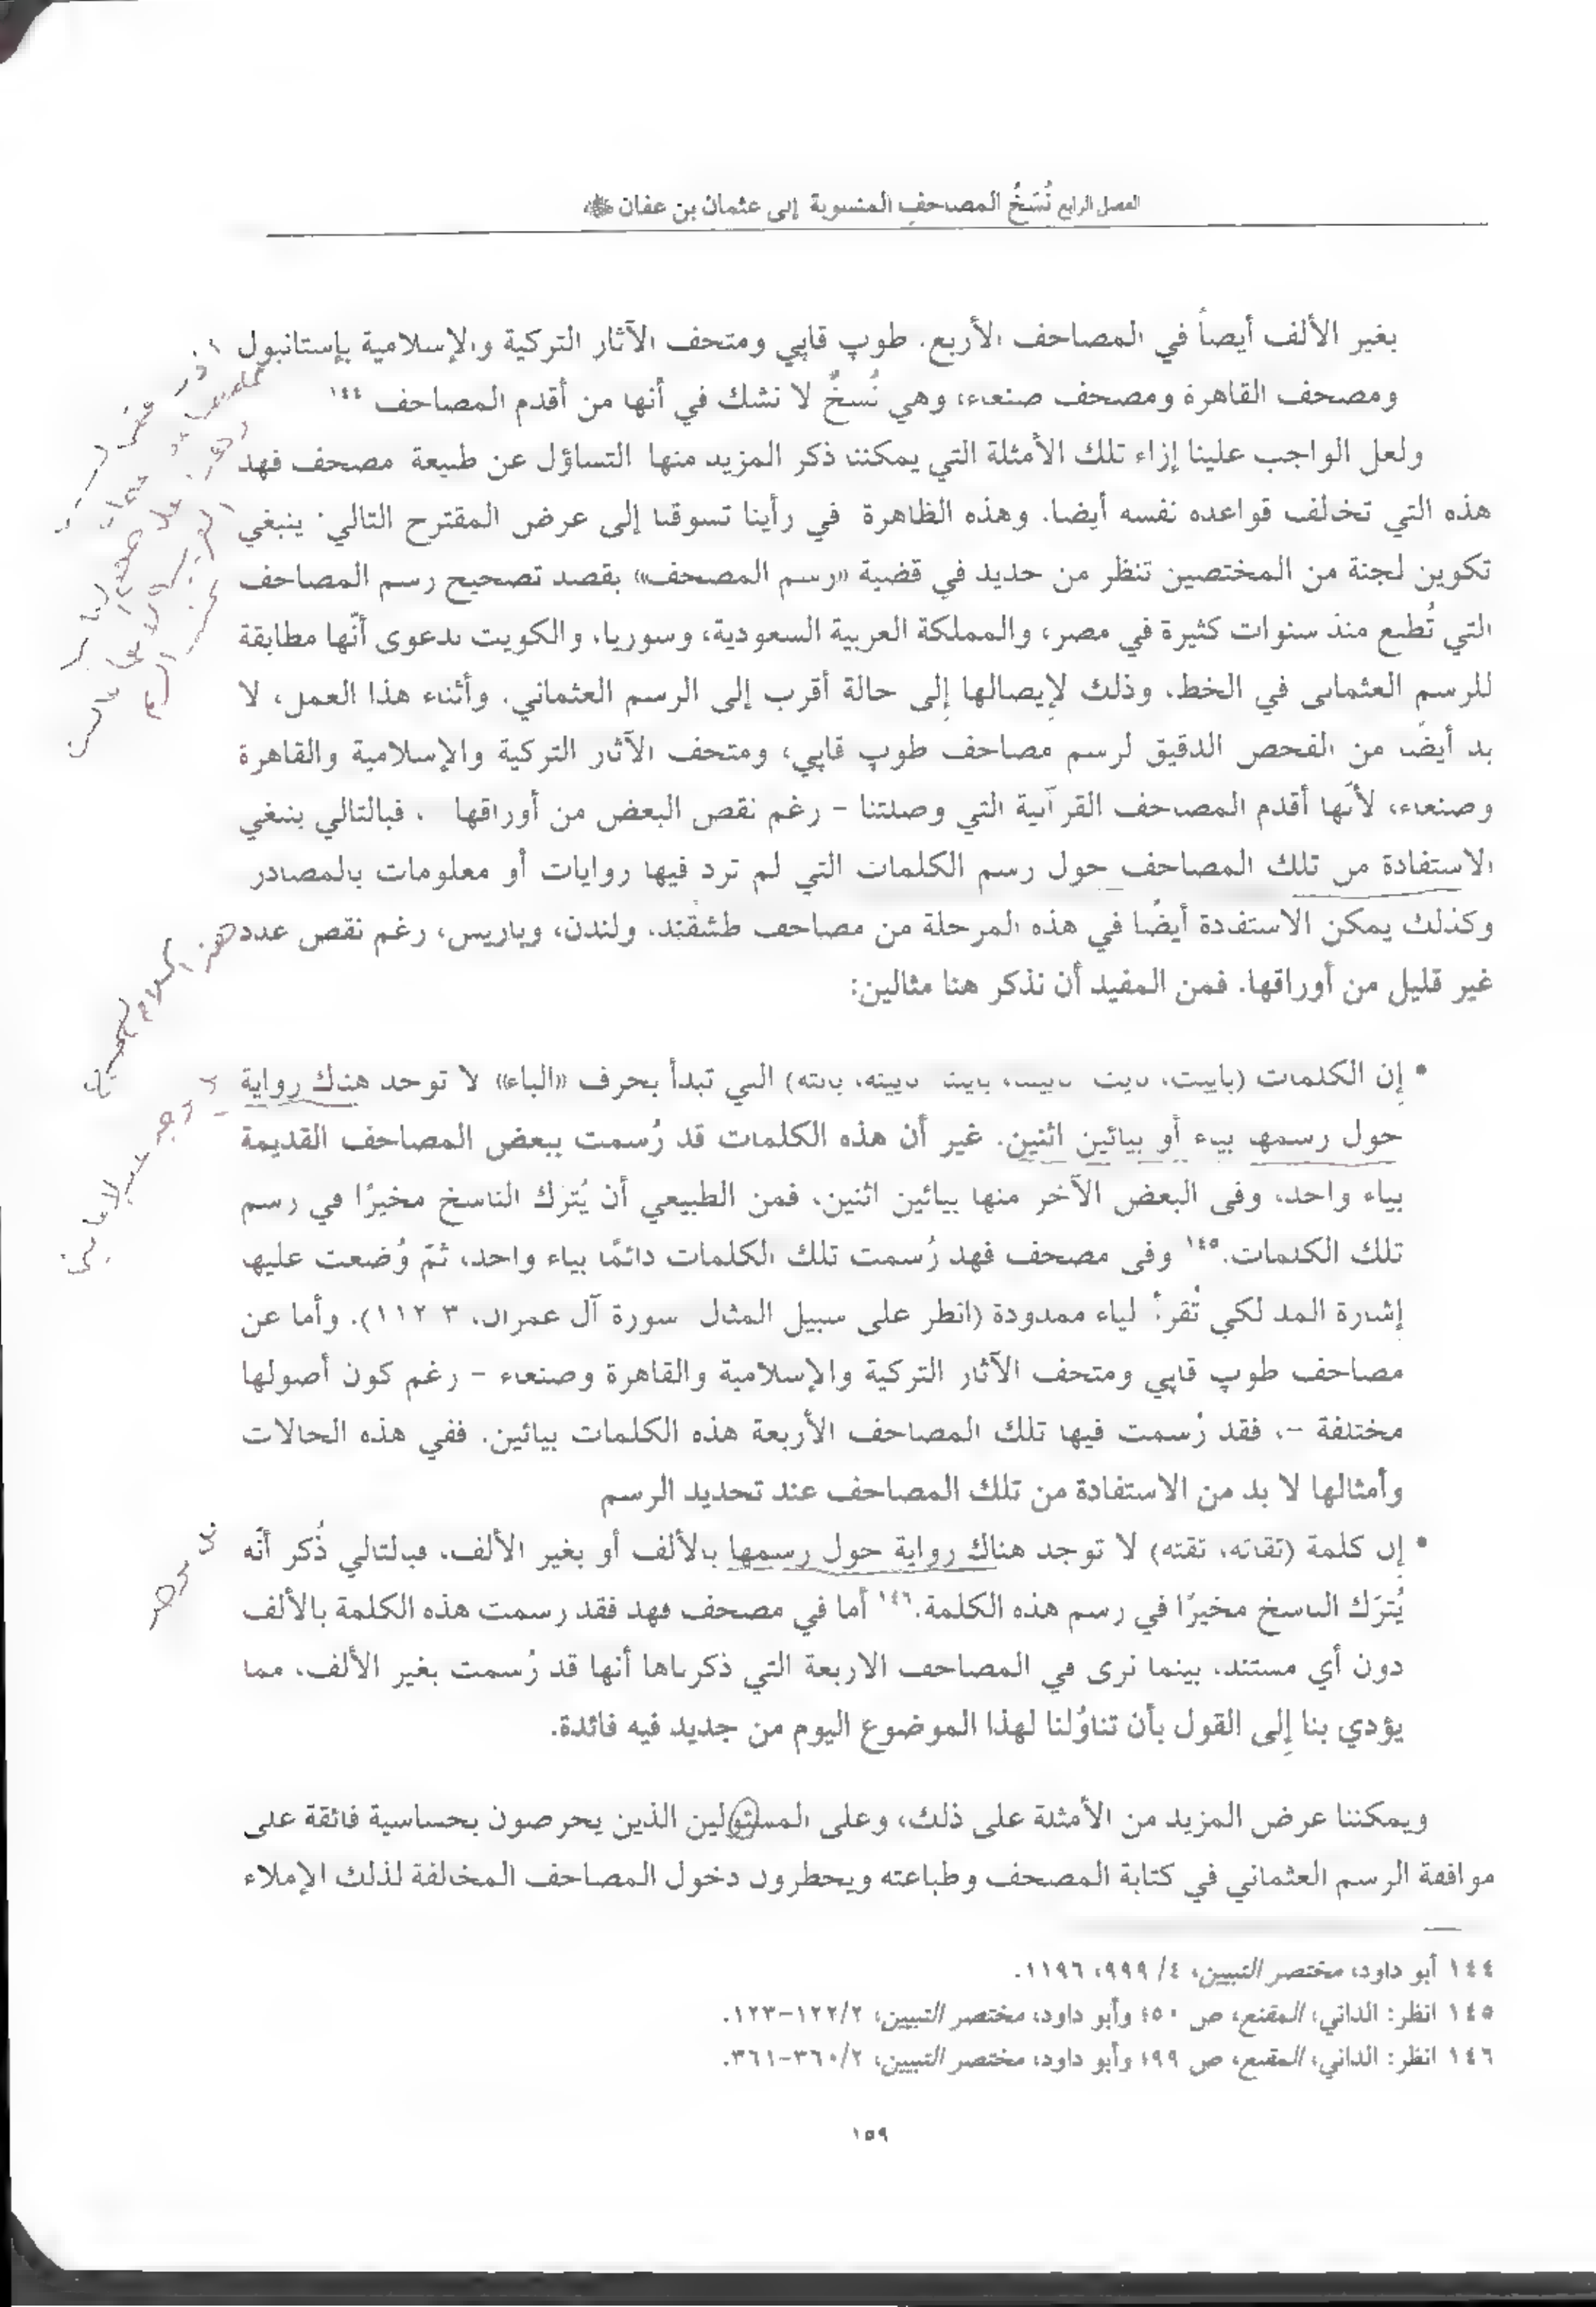 الفصل الرابع نُسَخُ المصاحفِ المنسوبة إلى عثمان بن عفان
بغير الألف أيضاً في المصاحف الأربع. طوپ قاپي ومتحف الآثار التركية والإسلامية بإستانبول
ومصحف القاهرة ومصحف صنعاء، وهي نُسخٌ لا نشك في أنها من أقدم المصاحف ١٤٤
ولعل الواجب علينا إزاء تلك الأمثلة التي يمكننا ذكر المزيد منها التساؤل عن طبيعة مصحف فهد
هذه التي تخالف قواعده نفسه أيضا. وهذه الظاهرة في رأينا تسوقنا إلى عرض المقترح التالي: ينبغي
تكوين لجنة من المختصين تنظر من جديد في قضية «رسم المصحف» بقصد تصحيح رسم المصاحف
التي تُطبع منذ سنوات كثيرة في مصر، والمملكة العربية السعودية، وسوريا، والكويت بدعوى أنّها مطابقة
للرسم العثماني في الخط، وذلك لإيصالها إلى حالة أقرب إلى الرسم العثماني. وأثناء هذا العمل، لا
بد أيضًا من الفحص الدقيق لرسم مصاحف طوپ قاپي، ومتحف الآثار التركية والإسلامية والقاهرة
وصنعاء، لأنّها أقدم المصاحف القرآنية التي وصلتنا - رغم نقص البعض من أوراقها ، فبالتالي ينبغي
الاستفادة من تلك المصاحف حول رسم الكلمات التي لم ترد فيها روايات أو معلومات بالمصادر
وكذلك يمكن الاستفادة أيضًا في هذه المرحلة من مصاحف طشقند، ولندن، وباريس، رغم نقص عدد
غير قليل من أوراقها. فمن المفيد أن نذكر هنا مثالين:
• إن الكلمات التي تبدأ بحرف «الباء» لا توجد هناك رواية
حول رسمها بياء أو بيائين اثنين. غير أن هذه الكلمات قد رُسمت ببعض المصاحف القديمة
بياء واحد، وفي البعض الآخر منها بيائين اثنين، فمن الطبيعي أن يُترَك الناسخ مخيرًا في رسم
تلك الكلمات.١٤٥ وفي مصحف فهد رُسمت تلك الكلمات دائمًا بياء واحد، ثمّ وُضعت عليها
إشارة المد لكي تُقرأ الياء ممدودة (انظر على سبيل المثال سورة آل عمران، ٣ ١١٢). وأما عن
مصاحف طوپ قاپي ومتحف الآثار التركية والإسلامية والقاهرة وصنعاء - رغم كون أصولها
مختلفة -، فقد رُسمت فيها تلك المصاحف الأربعة هذه الكلمات بيائين. ففي هذه الحالات
وأمثالها لا بد من الاستفادة من تلك المصاحف عند تحديد الرسم
• إن كلمة (تقاته، تقته) لا توجد هناك رواية حول رسمها بالألف أو بغير الألف، فبالتالي ذُكر أنّه
يُترَك الناسخ مخيرًا في رسم هذه الكلمة.١٤٦ أما في مصحف فهد فقد رسمت هذه الكلمة بالألف
دون أي مستند، بينما نرى في المصاحف الاربعة التي ذكرناها أنها قد رُسمت بغير الألف، مما
يؤدي بنا إلى القول بأن تناوُلنا لهذا الموضوع اليوم من جديد فيه فائدة.
ويمكننا عرض المزيد من الأمثلة على ذلك، وعلى المسئولين الذين يحرصون بحساسية فائقة على
موافقة الرسم العثماني في كتابة المصحف وطباعته ويحظرون دخول المصاحف المخالفة لذلك الإملاء
١٤٤ أبو داود، مختصر التبيين، ٤/ ٩٩٩، ١١٩٦.
١٤٥ انظر: الداني، المقنع، ص ٥٠؛ وأبو داود، مختصر التبيين، ١٢٢/٢-١٢٣.
١٤٦ انظر: الداني، المقنع، ص ٩٩؛ وأبو داود، مختصر التبيين، ٣٦٠/٢-٣٦١.
١٥٩